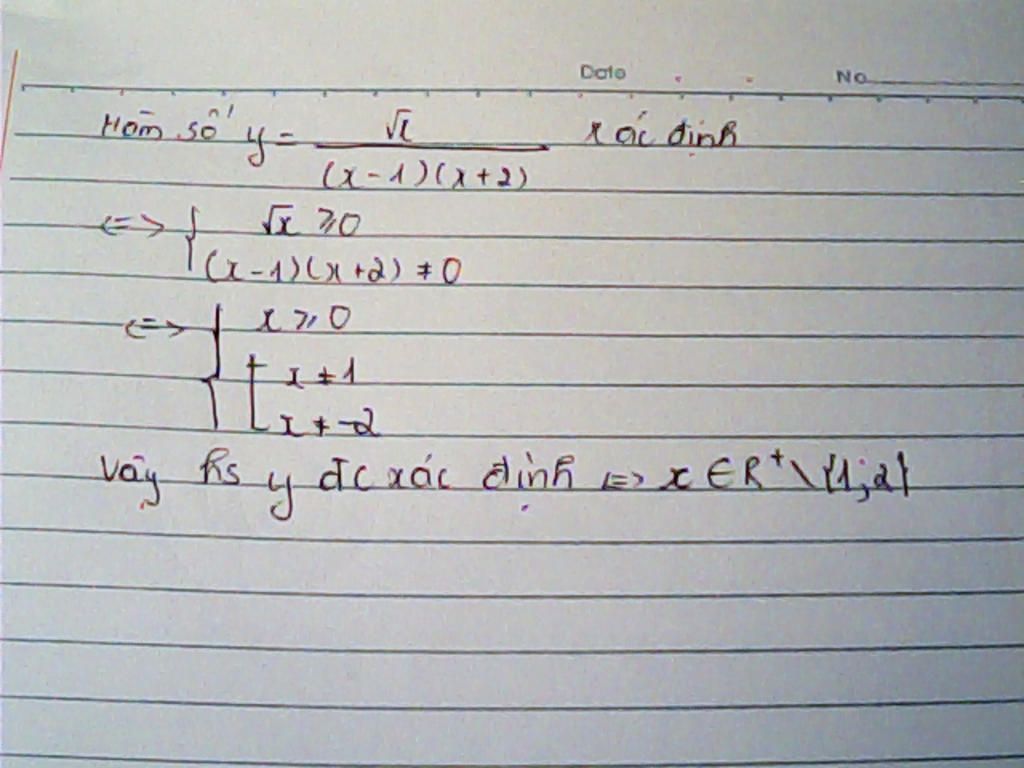 Date No
Hàm số y = √x / (x-1)(x+2) xác định
<=> { √x ≥ 0
(x-1)(x+2) ≠ 0
<=> { x ≥ 0
[ x ≠ 1
x ≠ -2
Vậy hs y đc xác định <=> x ∈ R⁺ \ {1;2}